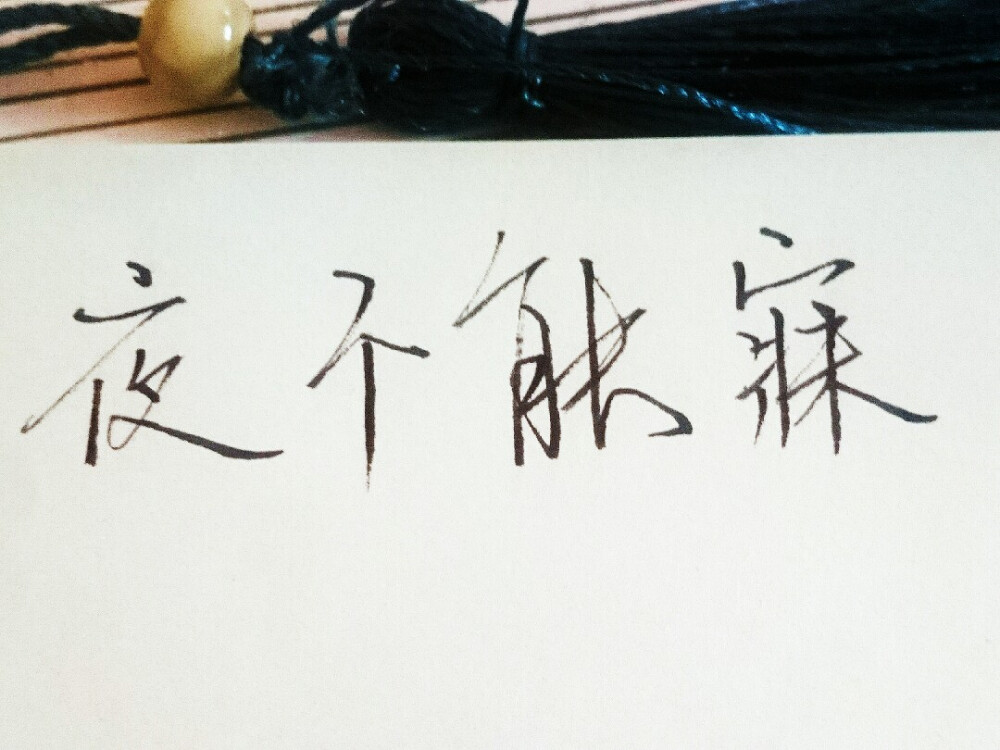 夜不能寐